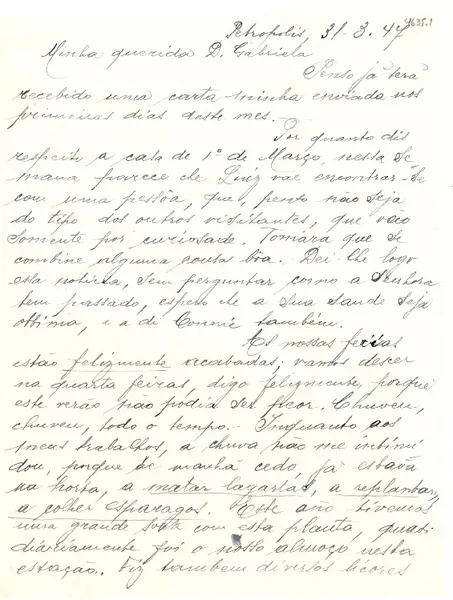 4635.1
Petropolis, 31-3.47
Minha querida D. Gabriela
Penso já terá
recebido uma carta minha enviada nos
primeiros dias deste mes.
Por quanto diz
respeito a casa de 1º de Março, nessa se-
mana parece che Luiz vae encontrar-se
com uma pessôa, que, penso não seja
do tipo dos outros visitantes, que vão
somente por curiosade. Tomára que se
combine alguma cousa boa. Dei-lhe logo
esta noticia, sem perguntar como a Senhora
tem passado, espero che a Sua Saude seja
ottima, e a de Connie também.
As nossas ferias
estão felizmente acabadas; vamos descer
na quarta feiras, digo felizmente, porque
este verão não pódia ser peor. Chuveu,
chuveu, todo o tempo. - Inquanto aos
meus trabalhos, a chuva não me intimi
dou, porque de manhã cedo, já estava
na horta, a matar lagartas, a replantar,
a colher esparagos. Este ano tivemos
uma grande com esta planta, quasi
diariamente foi o nosso almoço nesta
estação. Fiz tambem diversos licores